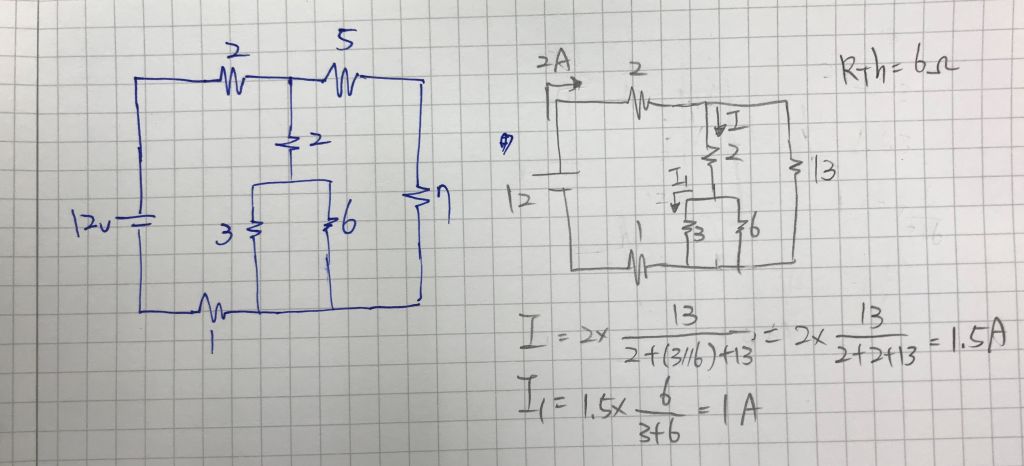 2
5
2
12v
3
6
7
1
2A
2
Rth = 6Ω
I
2
13
12
I₁
3
6
1
I = 2x 13/(2+(3//6)+13) = 2x 13/(2+2+13) = 1.5A
I₁ = 1.5x 6/(3+6) = 1A